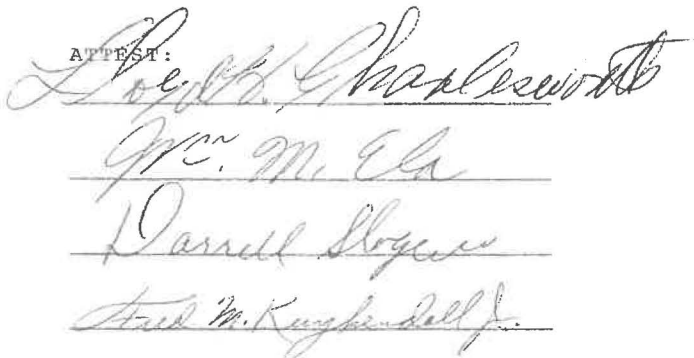 ATTEST:
Charlesworth
Wm. M. Ela
Darrell
Fred M. Kuykendall Jr.